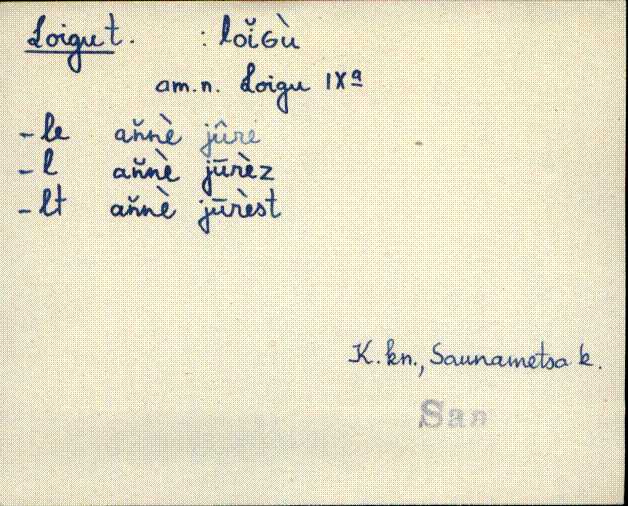 Loigu t. : loĭɢù
am.n. Loigu IXª
-le aňnè jûre
-l aňnè jūrèz
-lt aňnè jūrèst
K. kn., Saunametsa k.
Saa